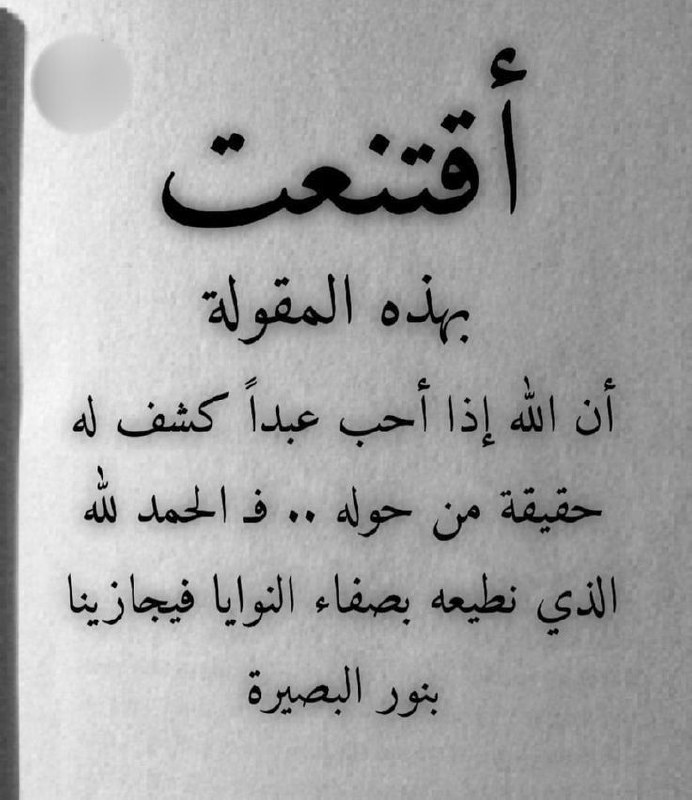 أقتنعت
بهذه المقولة
أن الله إذا أحب عبداً كشف له
حقيقة من حوله .. فـ الحمد لله
الذي نطيعه بصفاء النوايا فيجازينا
بنور البصيرة